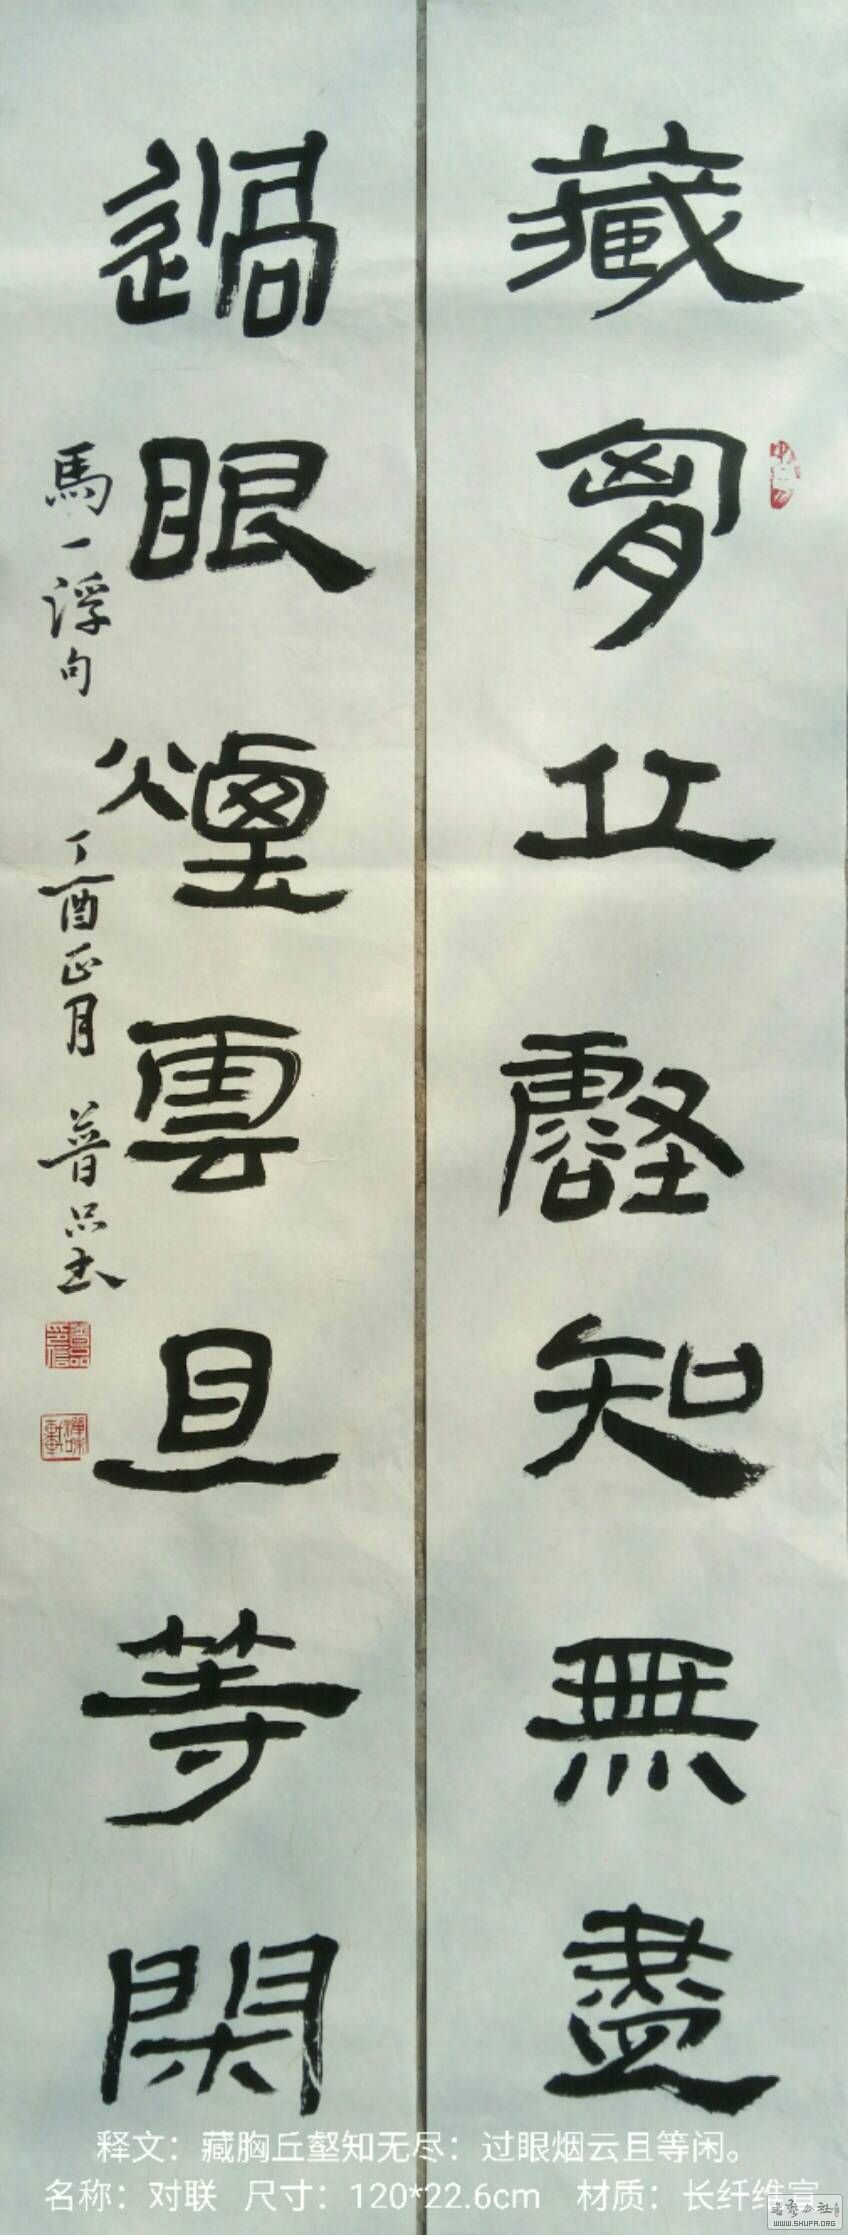 藏胷丘壑知無盡
過眼煙雲且等閑
馬一浮句
丁酉正月 普品书
释文：藏胸丘壑知无尽：过眼烟云且等闲。
名称：对联 尺寸：120*22.6cm 材质：长纤维宣
WWW.SHUFA.ORG